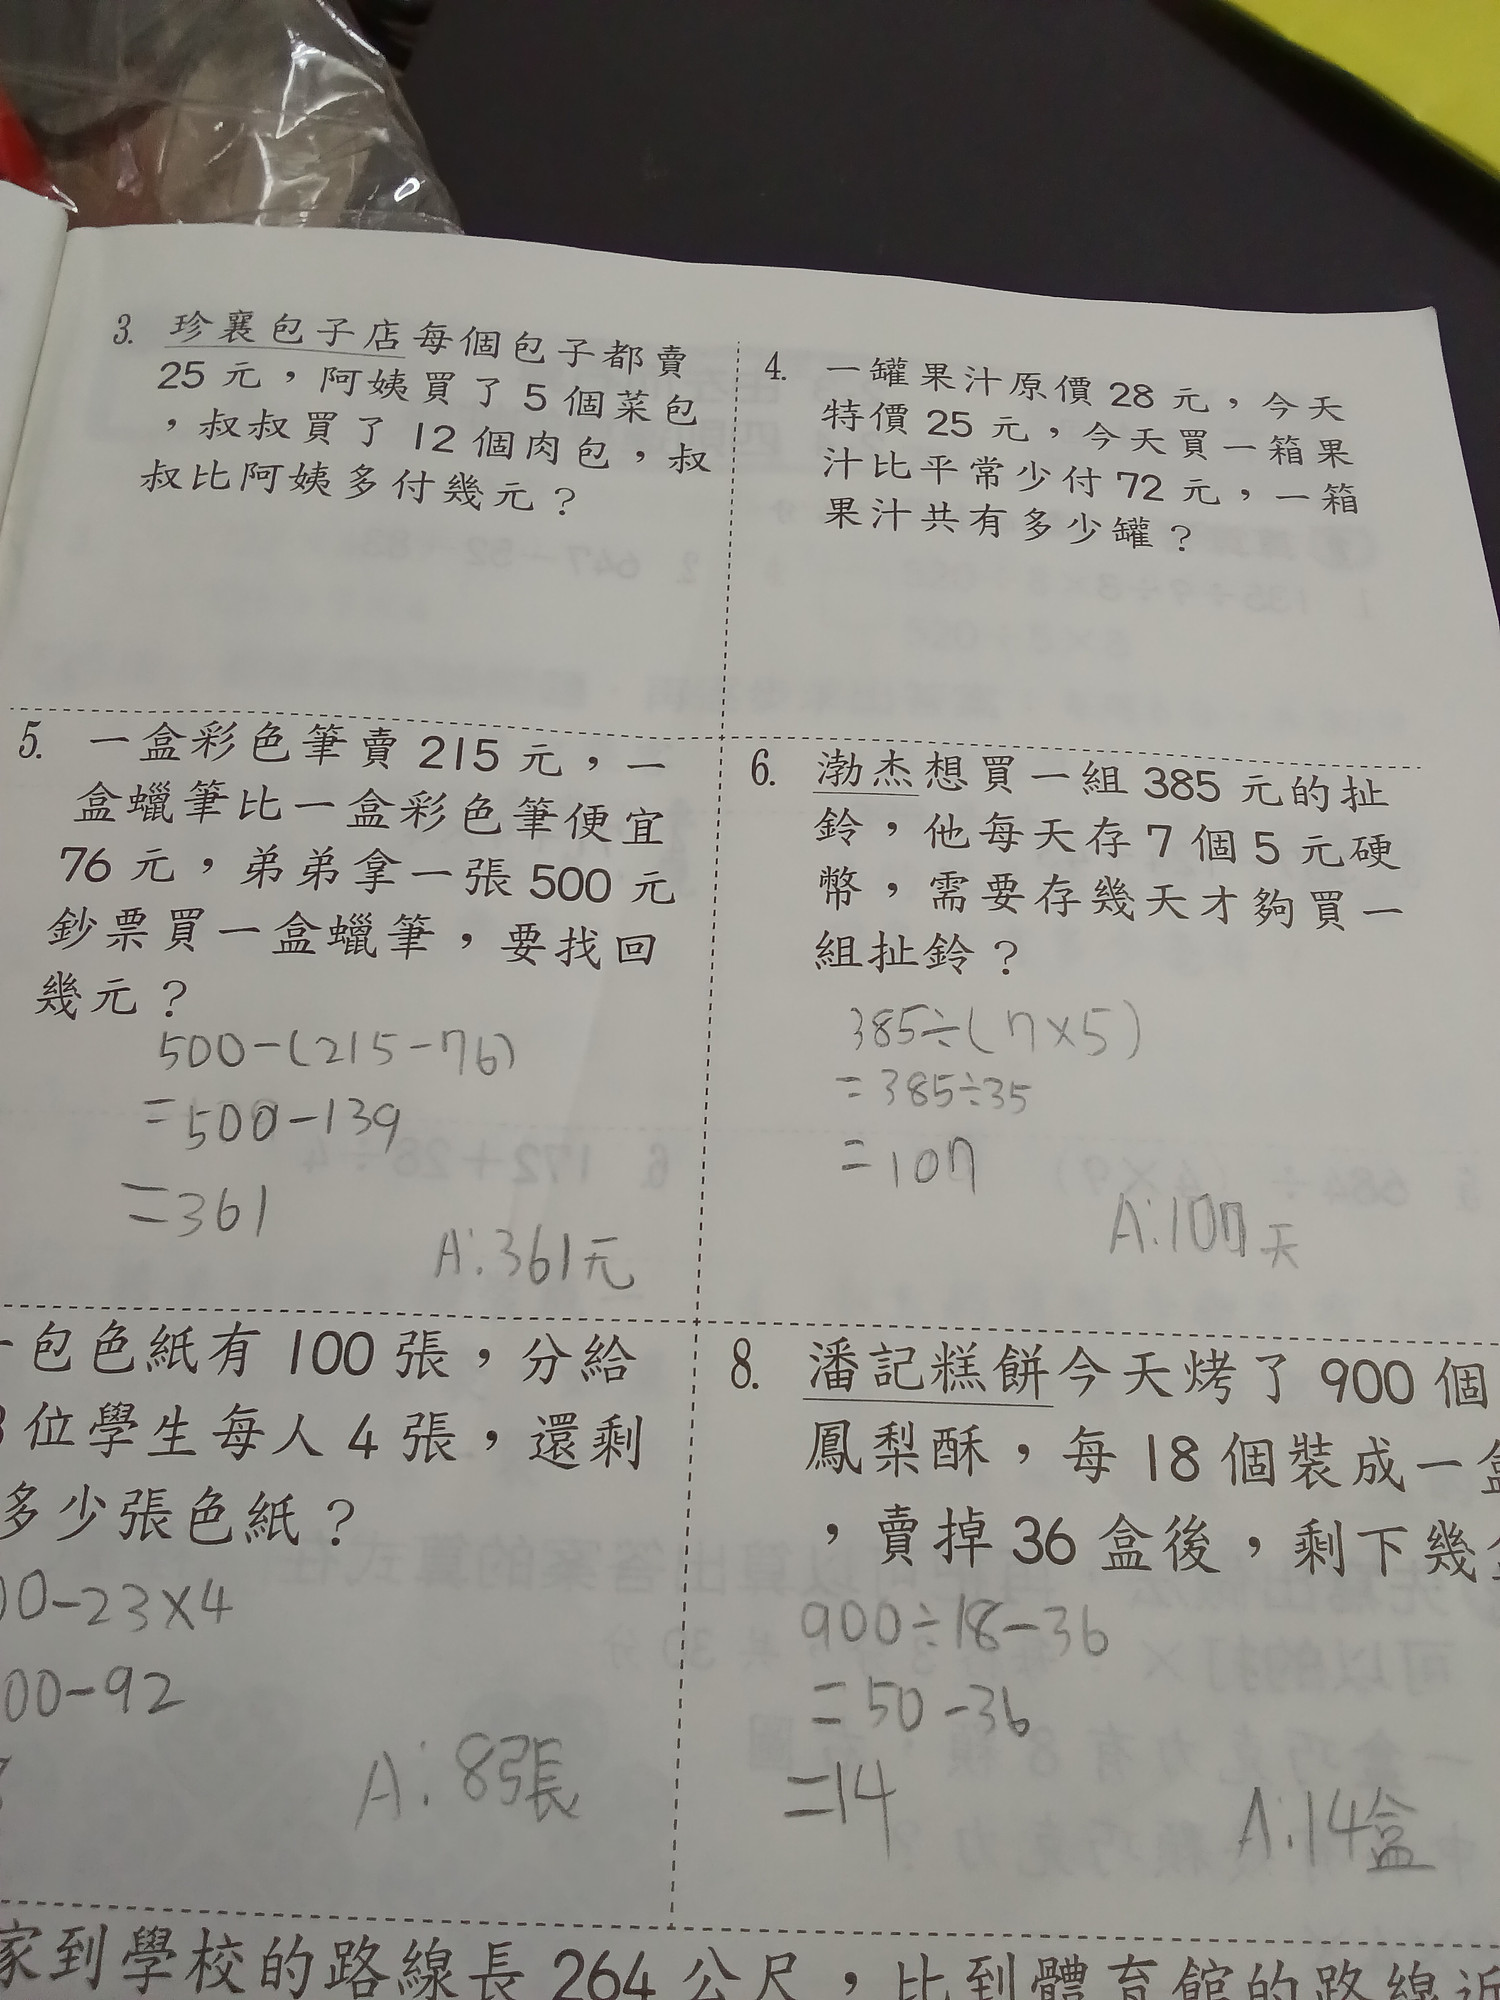 3. 珍襄包子店每個包子都賣
25 元，阿姨買了 5 個菜包
，叔叔買了 12 個肉包，叔
叔比阿姨多付幾元？
4. 一罐果汁原價 28 元，今天
特價 25 元，今天買一箱果
汁比平常少付 72 元，一箱
果汁共有多少罐？
5. 一盒彩色筆賣 215 元，一
盒蠟筆比一盒彩色筆便宜
76 元，弟弟拿一張 500 元
鈔票買一盒蠟筆，要找回
幾元？
500-(215-76)
=500-139
=361
A:361元
6. 渤杰想買一組 385 元的扯
鈴，他每天存 7 個 5 元硬
幣，需要存幾天才夠買一
組扯鈴？
385÷(7×5)
=385÷35
=107
A:107天
一包色紙有 100 張，分給
3 位學生每人 4 張，還剩
多少張色紙？
00-23×4
00-92
A:8張
8. 潘記糕餅今天烤了 900 個
鳳梨酥，每 18 個裝成一盒
，賣掉 36 盒後，剩下幾盒
900÷18-36
=50-36
=14
A:14盒
家到學校的路線長 264 公尺，比到體育館的路線近